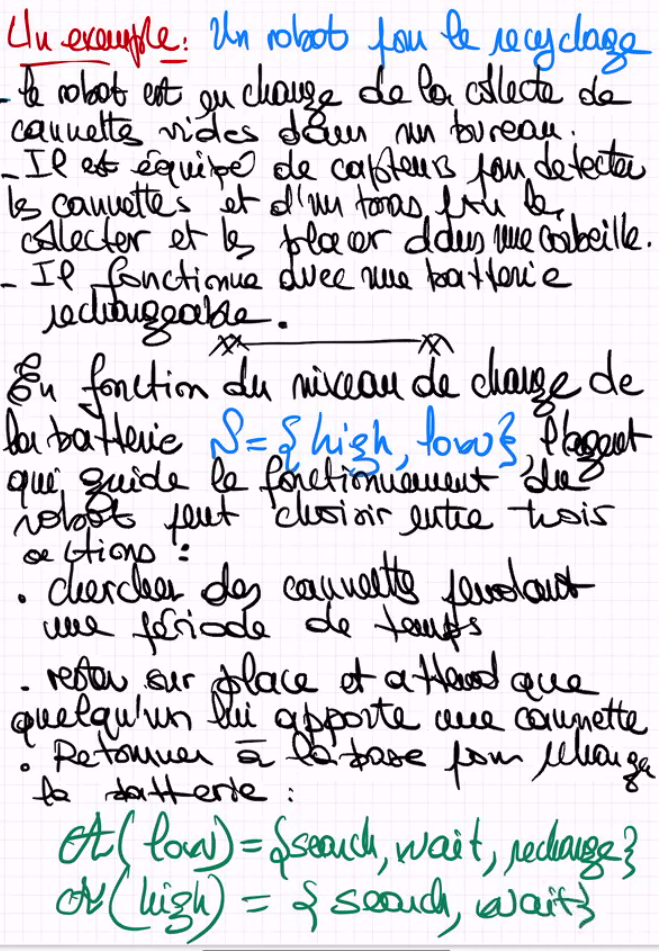 Un exemple: Un robot pour le recyclage
- le robot est en charge de la collecte de
cannettes vides dans un bureau.
- Il est équipé de capteurs pour detecter
les cannettes et d'un bras pour les
collecter et les placer dans une corbeille.
- Il fonctionne avec une batterie
rechargeable.
En fonction du niveau de charge de
la batterie S = {high, low}, l'agent
qui guide le fonctionnement du
robot peut choisir entre trois
actions :
• chercher des cannettes pendant
une période de temps
• rester sur place et attend que
quelqu'un lui apporte une cannette
• Retourner à la base pour recharger
la batterie :
A(low) = {search, wait, recharge}
A(high) = {search, wait}